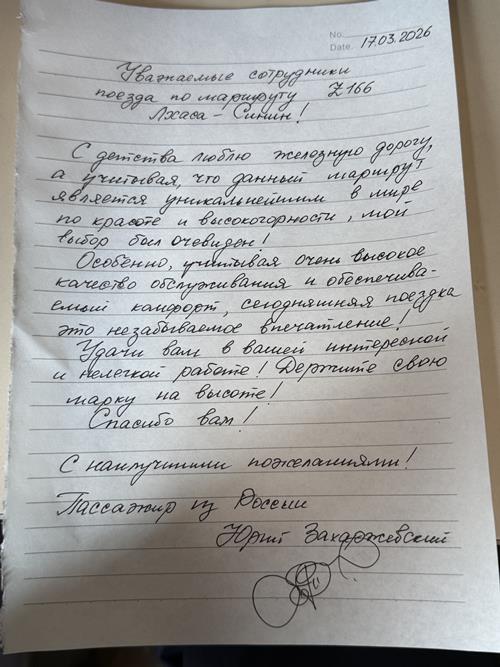 No.
Date. 17.03.2026
Уважаемые сотрудники
поезда по маршруту Z166
Лхаса - Синин!
С детства люблю железную дорогу,
а учитывая, что данный маршрут
является уникальнейшим в мире
по красоте и высокогорности, мой
выбор был очевиден!
Особенно, учитывая очень высокое
качество обслуживания и обеспечива-
емый комфорт, сегодняшняя поездка
это незабываемое впечатление!
Удачи вам в вашей интересной
и нелегкой работе! Держите свою
марку на высоте!
Спасибо вам!
С наилучшими пожеланиями!
Пассажир из России
Юрий Захаржевский